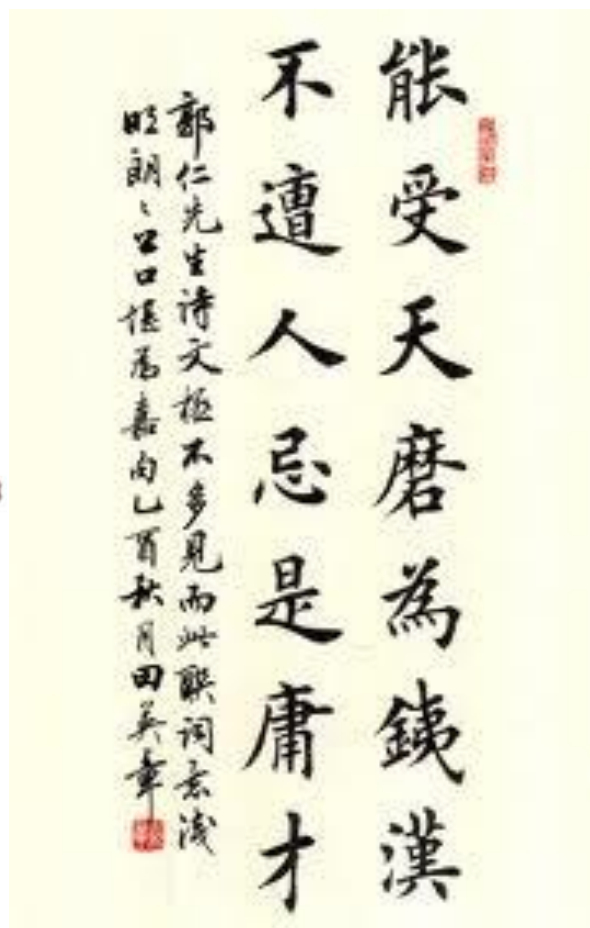 能受天磨為銕漢
不遭人忌是庸才
郭仁先生诗文極不多見而此联词意浅
明朗朗上口堪為嘉句乙酉秋月田英章